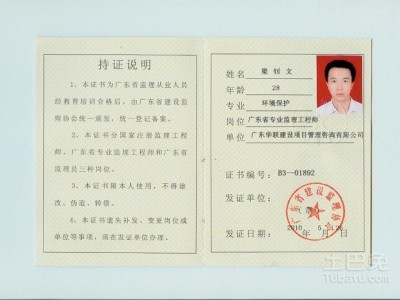 持证说明
1、本证书为广东省监理从业人员
经教育培训合格后，由广东省建设监
理协会统一颁发，统一登记备案。
2、本证书分国家注册监理工程
师、广东省专业监理工程师和广东省
监理员三种岗位。
3、本证书限本人使用，不得涂
改、伪造、转借。
4、本证书遗失补发、变更岗位或
单位等事项，须在发证单位办理。
姓名
年龄 28
专业 环境保护
岗位 广东省专业监理工程师
单位 广东华联建设项目管理咨询有限公司
证书编号：B3—01892
发证单位：
广东省建设监理协会
发证日期： 2010 年 5 月 日
土巴兔
Tobatu.com